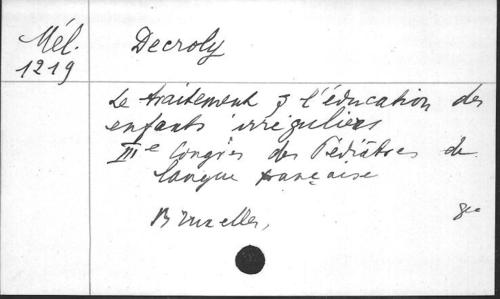 Mél.
1219
Decroly
Le traitement & l'éducation des
enfants irréguliers
IIIe Congrès des Pédiâtres de
langue française
Bruxelles, 8o